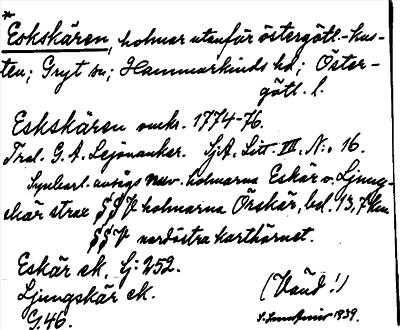 *
Eskskären, holmar utanför östergötl.-kus-
ten; Gryt sn; Hammarkinds hd; Öster-
götl. l.
Eskskären omkr. 1774-76.
Tral. G. A. Lejonanker. SjA, Litt. III, N:o 16.
Synbarl. avsågs nuv. holmarna Eskär o. Ljung-
skär strax SSV holmarna Örskär, bel. 13,7 km
SSV nordöstra karthörnet.
Eskär ek, Ej: 252.
Ljungskär ek.
G.46. (Vänd!)
1939.